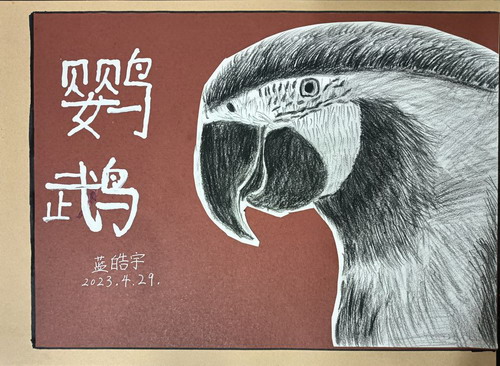 鹦
鹉
蓝皓宇
2023.4.29.